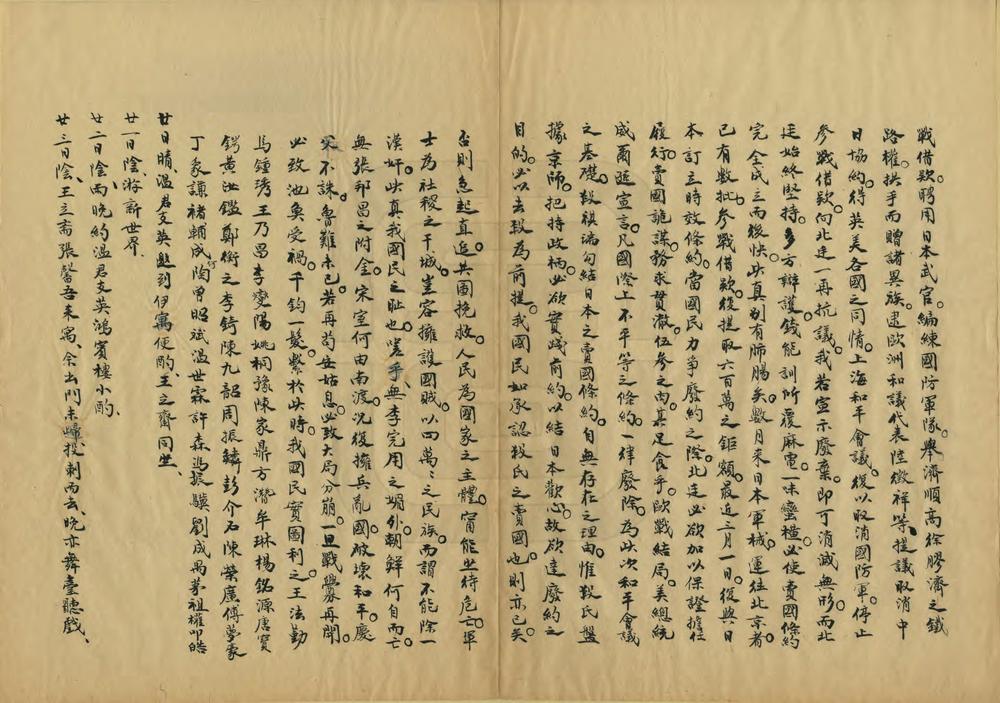 戰借欵聘用日本武官。編練國防軍隊。舉濟順高徐膠濟之鐵
路權。拱手而贈諸異族。逮歐洲和議代表陸徵祥等、提議取消中
日協約。得英美各國之同情。上海和平會議。復以取消國防軍。停止
參戰借欵向北廷一再抗議。我若宣示廢棄。即可消滅無形。而北
廷始終堅持。多方辯護。錢能訓所覆麻電。一味蠻橫。必使賣國條約
完全成立而後快。此真别有肺腸矣。數月來日本軍械。運往北京者
已有數批。參戰借欵。後提取六百萬之鉅額。最近三月一日。復與日
本訂立時效條約。當國民力爭廢約之際。北廷必欲加以保證擔任
履行。賣國詭謀。務求貫澈。伍參之肉。其足食乎。歐戰結局。美總統
威爾遜宣言。凡國際上不平等之條約。一律廢除。為此次和平會議
之基礎。段祺瑞勾結日本之賣國條約。自無存在之理由。惟段氏盤
據京師。把持政柄。必欲實踐前約。以結日本歡心。故欲達廢約之
目的。必以去段為前提。我國民如承認段氏之賣國也。則亦已矣。
否則急起直追。共圖挽救。人民為國家之主體。甯能坐待危亡。軍
士為社稷之干城。豈容擁護國賊。以四萬萬之民族。而謂不能除一
漢奸。此真我國民之耻也。嗟乎。無李完用之媚外。朝鮮何自而亡。
無張邦昌之附金。宋室何由南渡。況復擁兵亂國。破壞和平。慶
父不誅。魯難未已。若再苟安姑息。必致大局分崩。一旦戰釁再開。
必致池魚受禍。千鈞一髮。繫於此時。我國民實圖利之。王法勤
馬鍾琇王乃昌李燮陽姚桐豫陳家鼎方潛牟琳楊銘源唐寶
鍔黃汝鑑鄭衡之李錡陳九韶周振鱗彭介石陳榮廣傅夢豪
丁象謙褚輔成陶昭斌溫世霖許森馮振驥劉成禺茅祖權叩皓
廿日晴、溫君支英邀到伊寓便酌、王立齋同坐、
廿一日陰、游新世界、
廿二日陰雨、晚約溫君支英鴻賓樓小酌、
廿三日陰、王立齋張馨吾來寓、余出門未歸、投刺而去、晚亦舞臺聽戲、